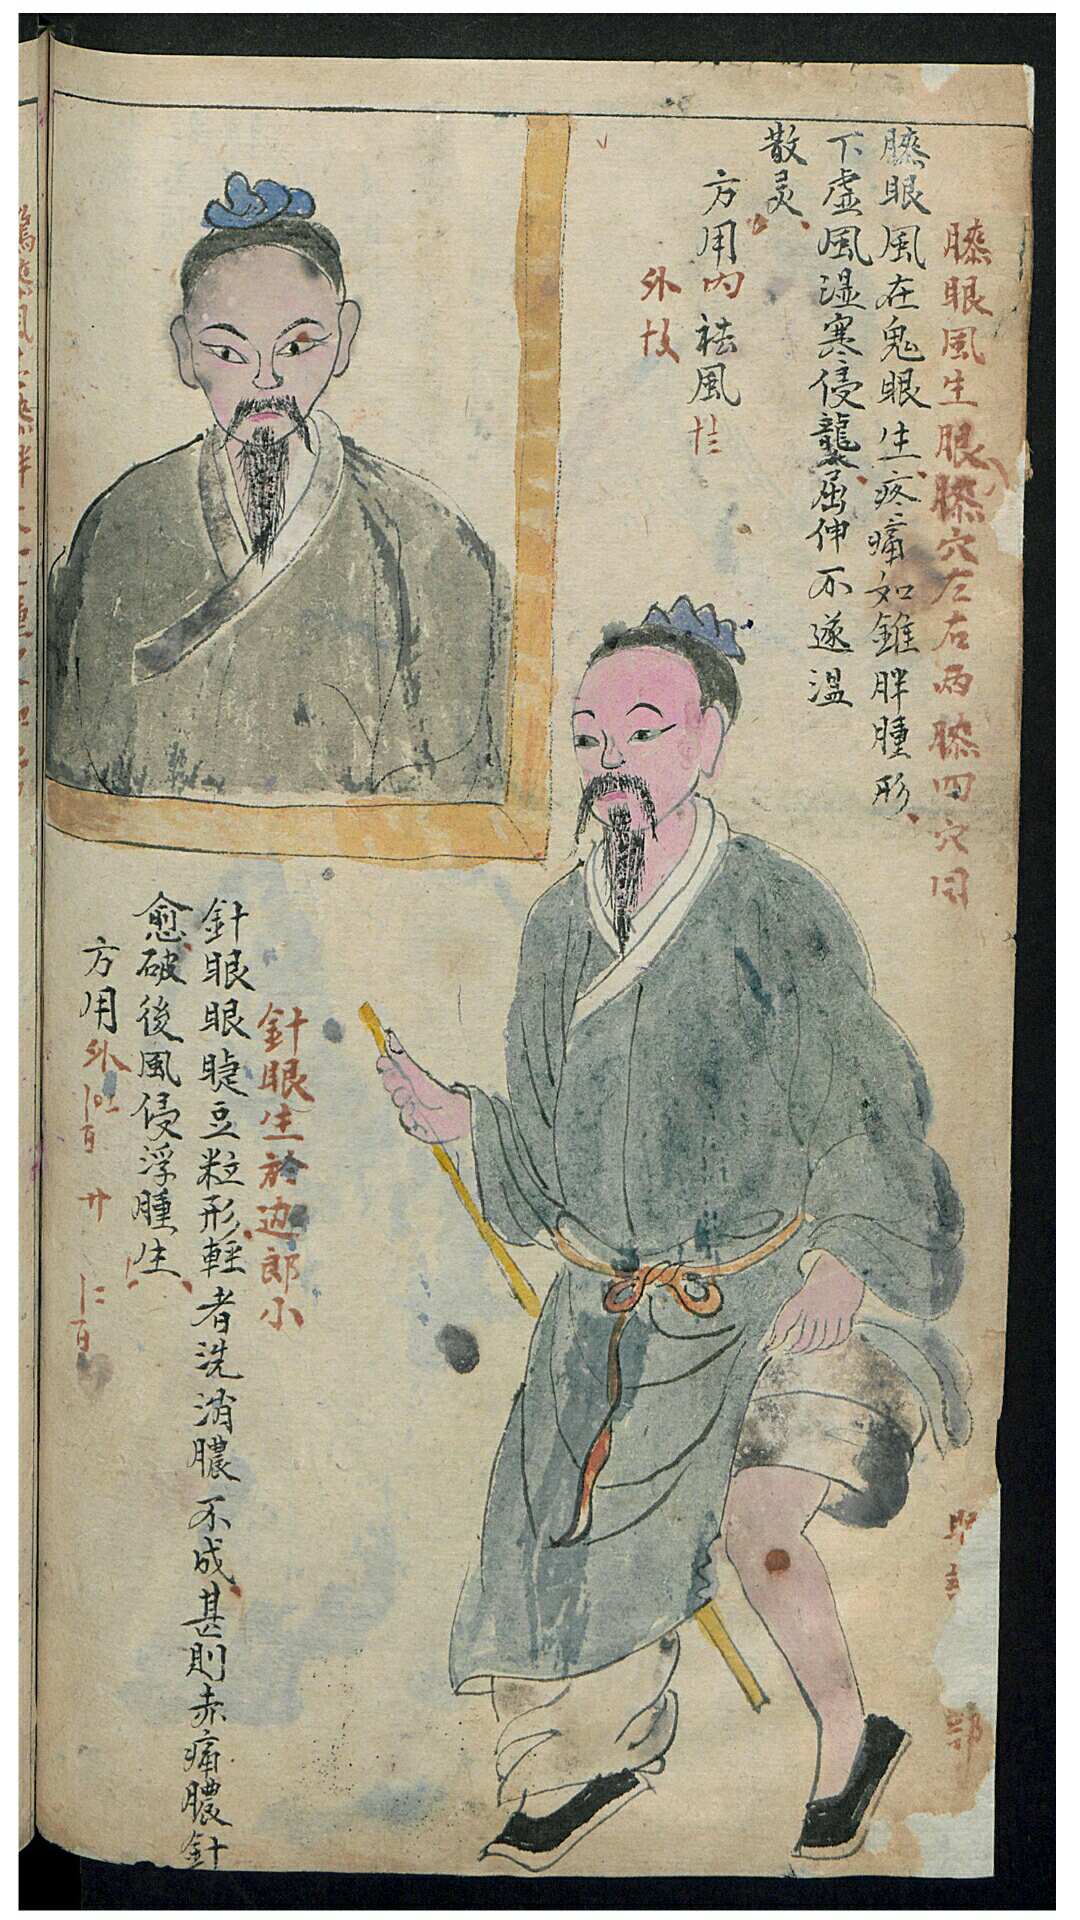 膝眼風生眼膝穴左右两膝四穴同
膝眼風在鬼眼生疼痛如錐胖腫形
下虚風湿寒侵襲屈伸不遂温
散灵
方用内祛風
外
針眼生於边郎小
針眼眼睫豆粒形輕者洗消膿不成甚則赤痛膿針
愈破後風侵浮腫生
方用外
部